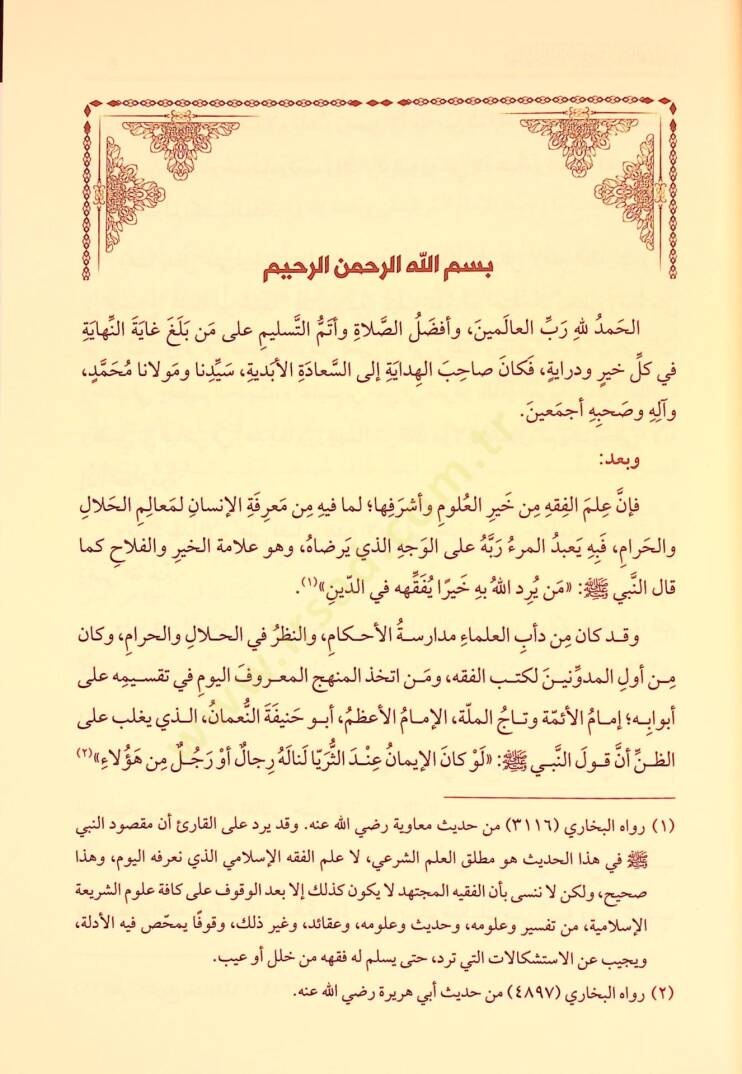 بسم الله الرحمن الرحيم
الحَمدُ للهِ رَبِّ العالَمينَ، وأفضَلُ الصَّلاةِ وأتَمُّ التَّسليمِ على مَن بَلَغَ غايَةَ النِّهايَةِ
في كلِّ خيرٍ ودرايةٍ، فَكانَ صاحِبَ الهِدايَةِ إلى السَّعادَةِ الأبَديةِ، سَيِّدِنا ومَولانا مُحَمَّدٍ،
وآلِهِ وصَحبِهِ أجمَعينَ.
وبعد:
فإنَّ عِلمَ الفِقهِ مِن خَيرِ العُلومِ وأشرَفِها؛ لما فيهِ مِن مَعرِفَةِ الإنسانِ لمَعالِمِ الحَلالِ
والحَرامِ، فَبِهِ يَعبدُ المرءُ رَبَّهُ على الوَجهِ الذي يَرضاهُ، وهو علامة الخيرِ والفلاحِ كما
قال النَّبي ﷺ: «مَن يُرِد اللهُ بهِ خَيرًا يُفَقِّهه في الدّينِ»(١).
وقد كان مِن دأبِ العلماءِ مدارسةُ الأحكامِ، والنظرُ في الحلالِ والحرامِ، وكان
مِن أولِ المدوِّنينَ لكتب الفقه، ومَن اتخذ المنهج المعروفَ اليومِ في تقسيمِه على
أبوابِه؛ إمامُ الأئمّة وتاجُ الملّة، الإمامُ الأعظمُ، أبو حَنيفَةَ النُّعمانُ، الذي يغلب على
الظنِّ أنَّ قولَ النَّبي ﷺ: «لَوْ كانَ الإيمانُ عِنْدَ الثُّرَيّا لَنالَهُ رِجالٌ أوْ رَجُلٌ مِن هَؤُلاءِ»(٢)
(١) رواه البخاري (٣١١٦) من حديث معاوية رضي الله عنه. وقد يرد على القارئ أن مقصود النبي
ﷺ في هذا الحديث هو مطلق العلم الشرعي، لا علم الفقه الإسلامي الذي نعرفه اليوم، وهذا
صحيح، ولكن لا ننسى بأن الفقيه المجتهد لا يكون كذلك إلا بعد الوقوف على كافة علوم الشريعة
الإسلامية، من تفسير وعلومه، وحديث وعلومه، وعقائد، وغير ذلك، وقوفًا يمحّص فيه الأدلة،
ويجيب عن الاستشكالات التي ترد، حتى يسلم له فقهه من خلل أو عيب.
(٢) رواه البخاري (٤٨٩٧) من حديث أبي هريرة رضي الله عنه.